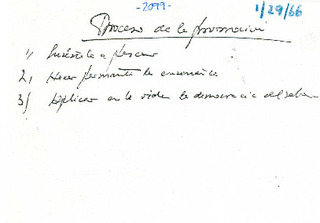 -2099-
1/29/66
Proceso de la promoción
1) Enséñele a pescar
2) Hacer permanente la enseñanza
3) Aplicar en la vida la democracia del saber